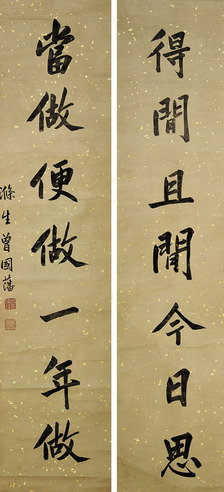 得閒且閒今日思
當做便做一年做
滌生曾國藩